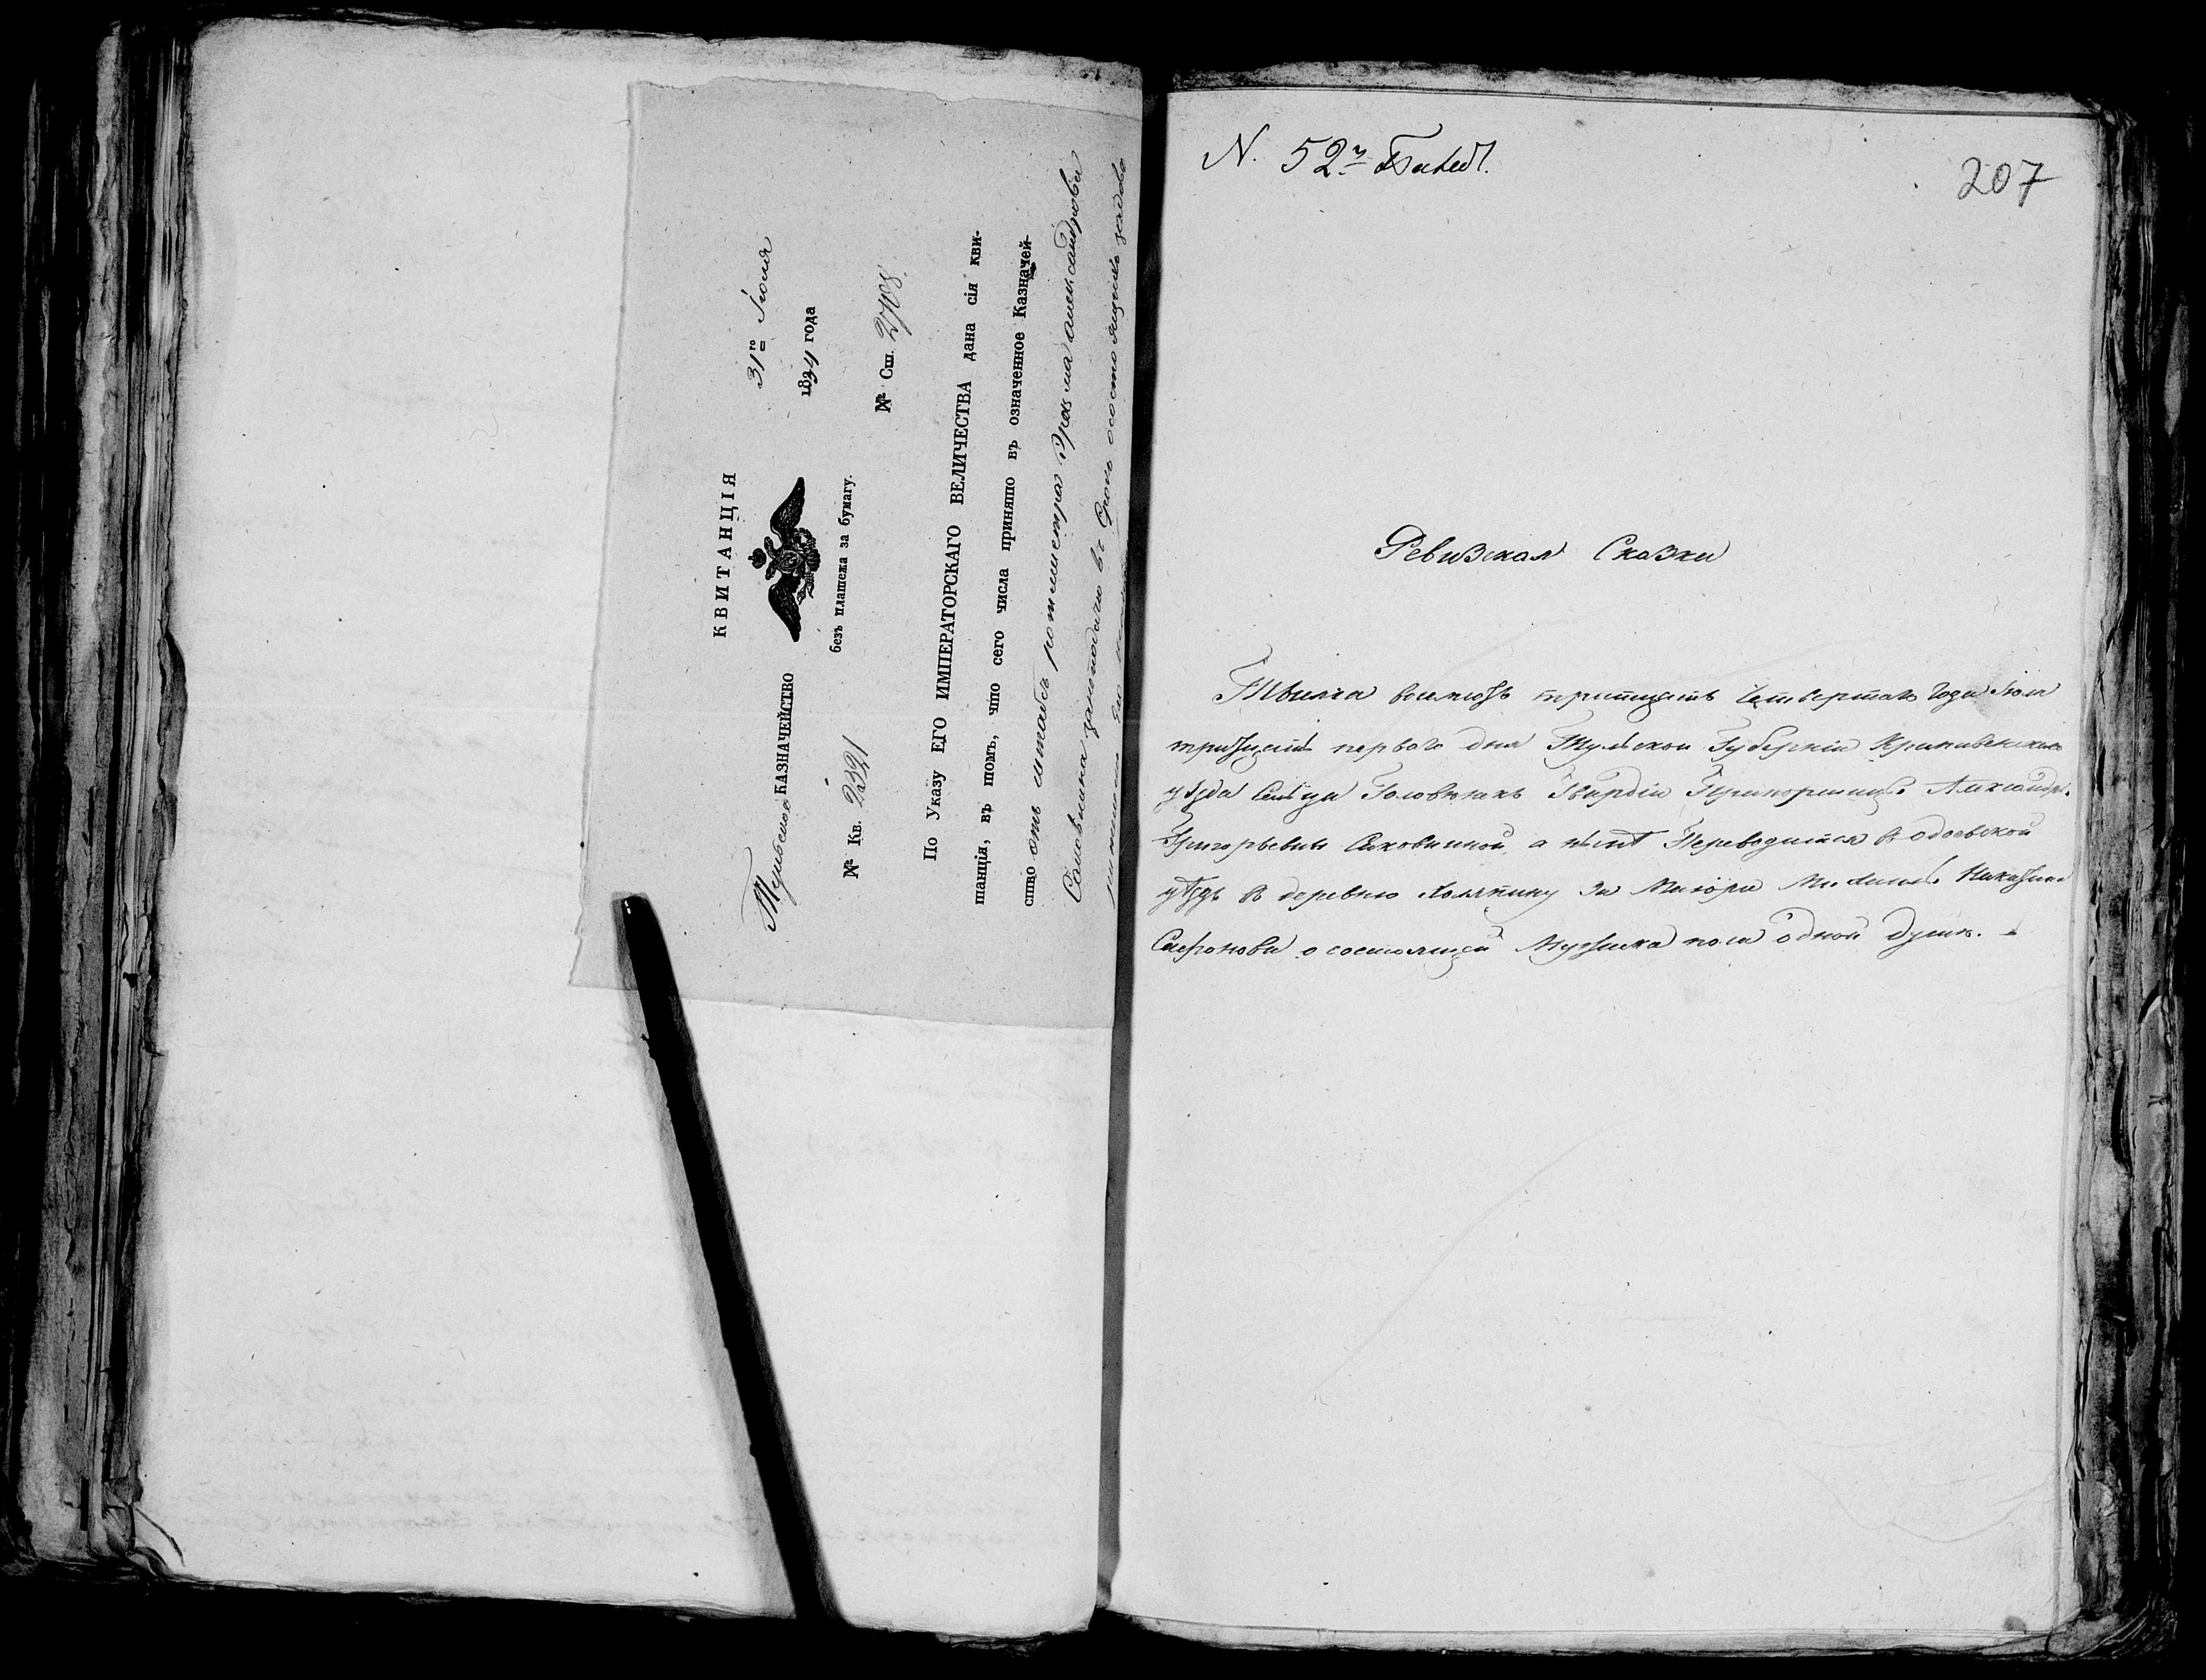 КВИТАНЦІЯ
31го Іюля
Тульское КАЗНАЧЕЙСТВО
1834 года
безъ платежа за бумагу.
№ Кв. 2391
№ Сш. 2708.
По Указу ЕГО ИМПЕРАТОРСКАГО ВЕЛИЧЕСТВА дана сія кви-
танція, въ томъ, что сего числа принято въ означенное Казначей-
ство отъ штабсъ ротмистра александрова
Саковнина въ
N. 52й
207
Ревизская Сказка
Тысяча восемьсотъ тритцать четвертаго года Іюля
тритцать перваго дня Тульской Губерніи Крапивенскаго
уѣзда Сельца Головнакъ Гвардіи Прапорщицы Александры
Григорьевны Саковниной, а нынѣ Переводится въ одоевской
уѣздъ въ деревню за Маіора
Сафонова о состоящей Мужска пола одной душѣ.